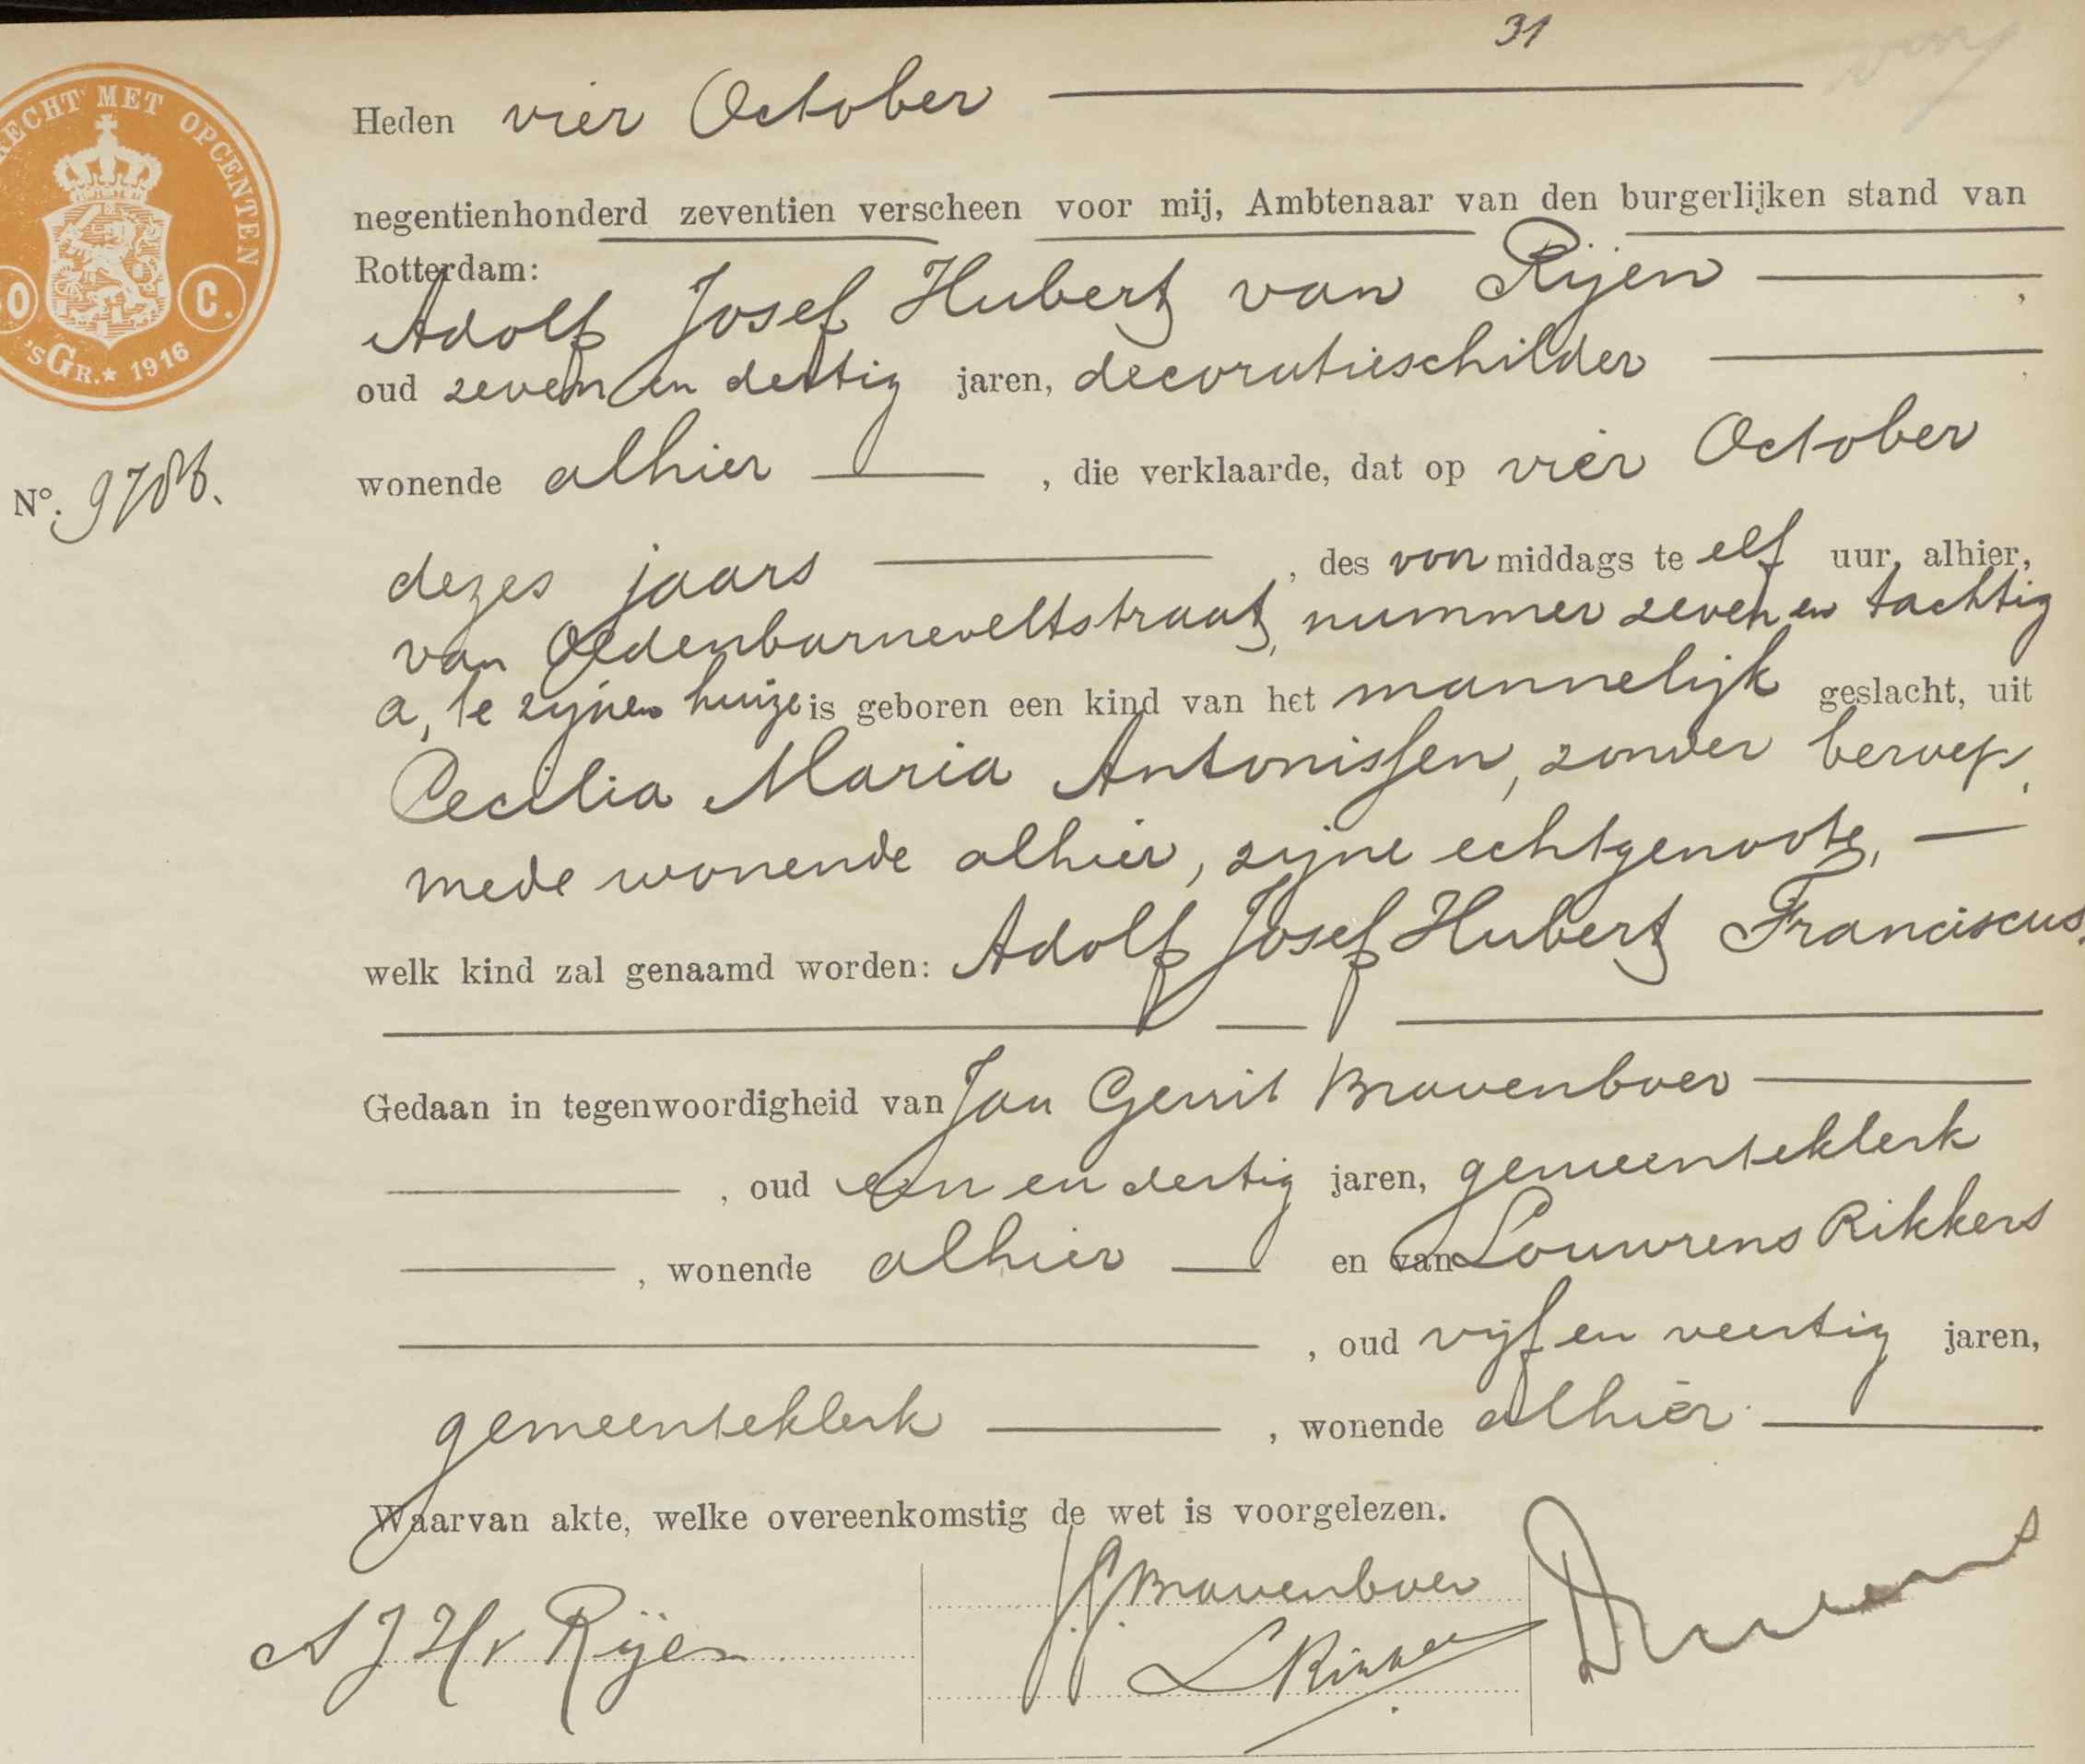 31
RECHT MET OPCENTEN
Heden vier October
negentienhonderd zeventien verscheen voor mij, Ambtenaar van den burgerlijken stand van
Rotterdam:
Adolf Josef Hubert van Rijen
0 C.
'sGR. * 1916
oud zeven en dertig jaren, decoratieschilder
wonende alhier , die verklaarde, dat op vier October
No.
dezes jaars , des voormiddags te elf uur, alhier,
van Oldenbarneveltstraat, nummer zeven en tachtig
a, te zijnen huize is geboren een kind van het mannelijk geslacht, uit
Cecilia Maria Antonissen, zonder beroep,
mede wonende alhier, zijne echtgenoote,
welk kind zal genaamd worden: Adolf Josef Hubert Franciscus.
Gedaan in tegenwoordigheid van Jan Gerrit Bravenboer
, oud een en dertig jaren, gemeenteklerk
, wonende alhier en van Louwrens Rikkers
, oud vijf en veertig jaren,
gemeenteklerk , wonende alhier
Waarvan akte, welke overeenkomstig de wet is voorgelezen.
A J H v Rijen
JG Bravenboer
L Rikkers